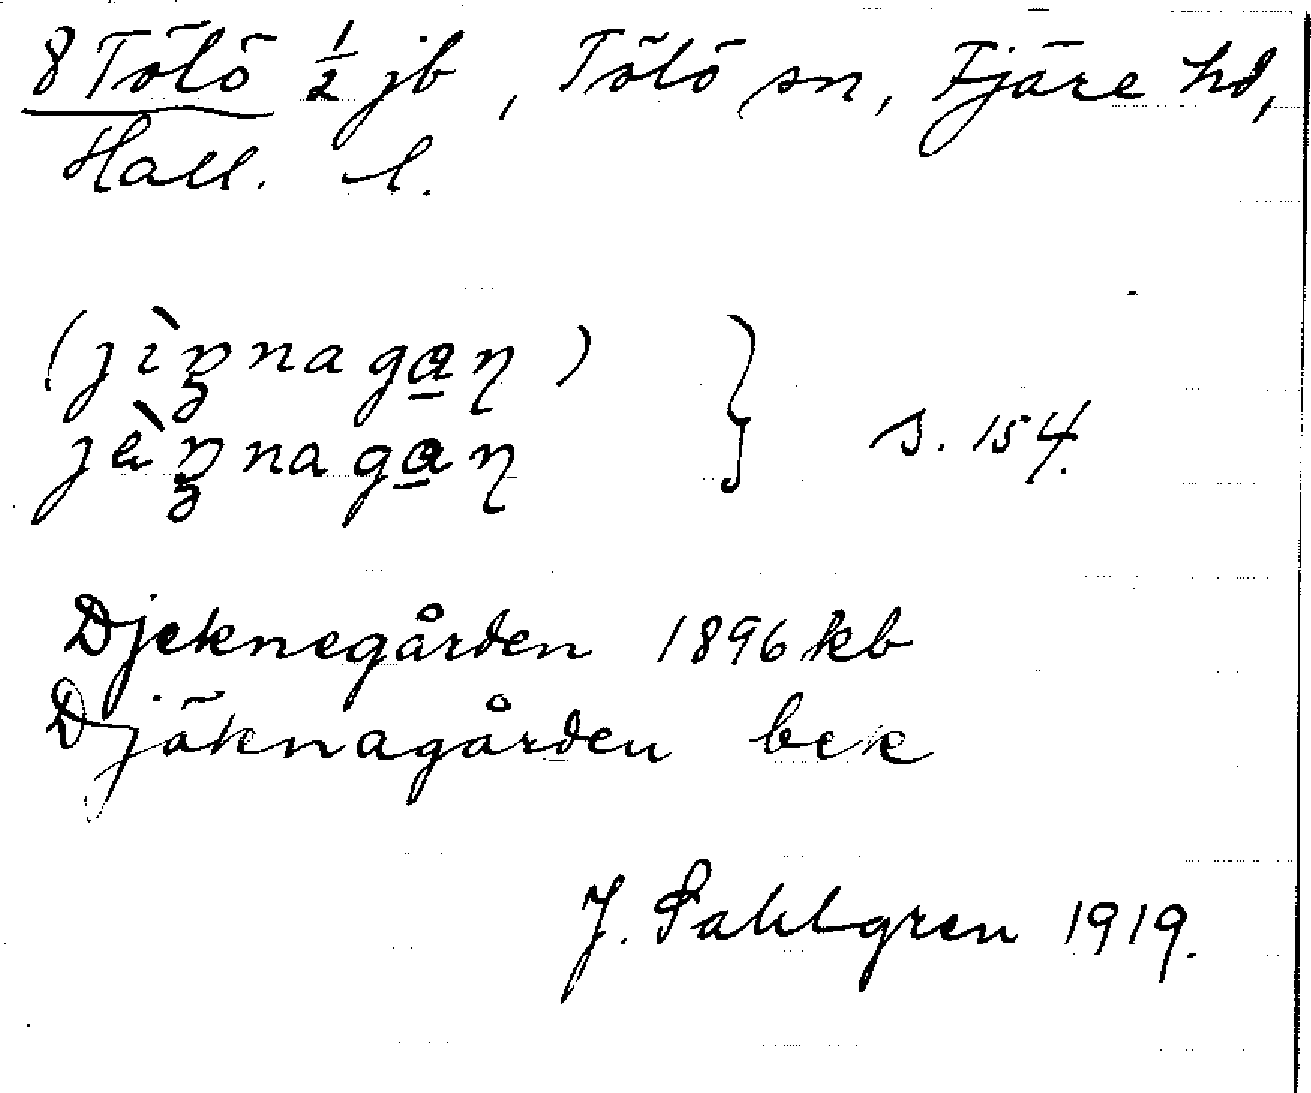 8 Tölö ½ jb, Tölö sn, Fjäre hd,
Hall. l.
s. 154.
Djeknegården 1896 kb
Djäknagården bek
J. Sahlgren 1919.